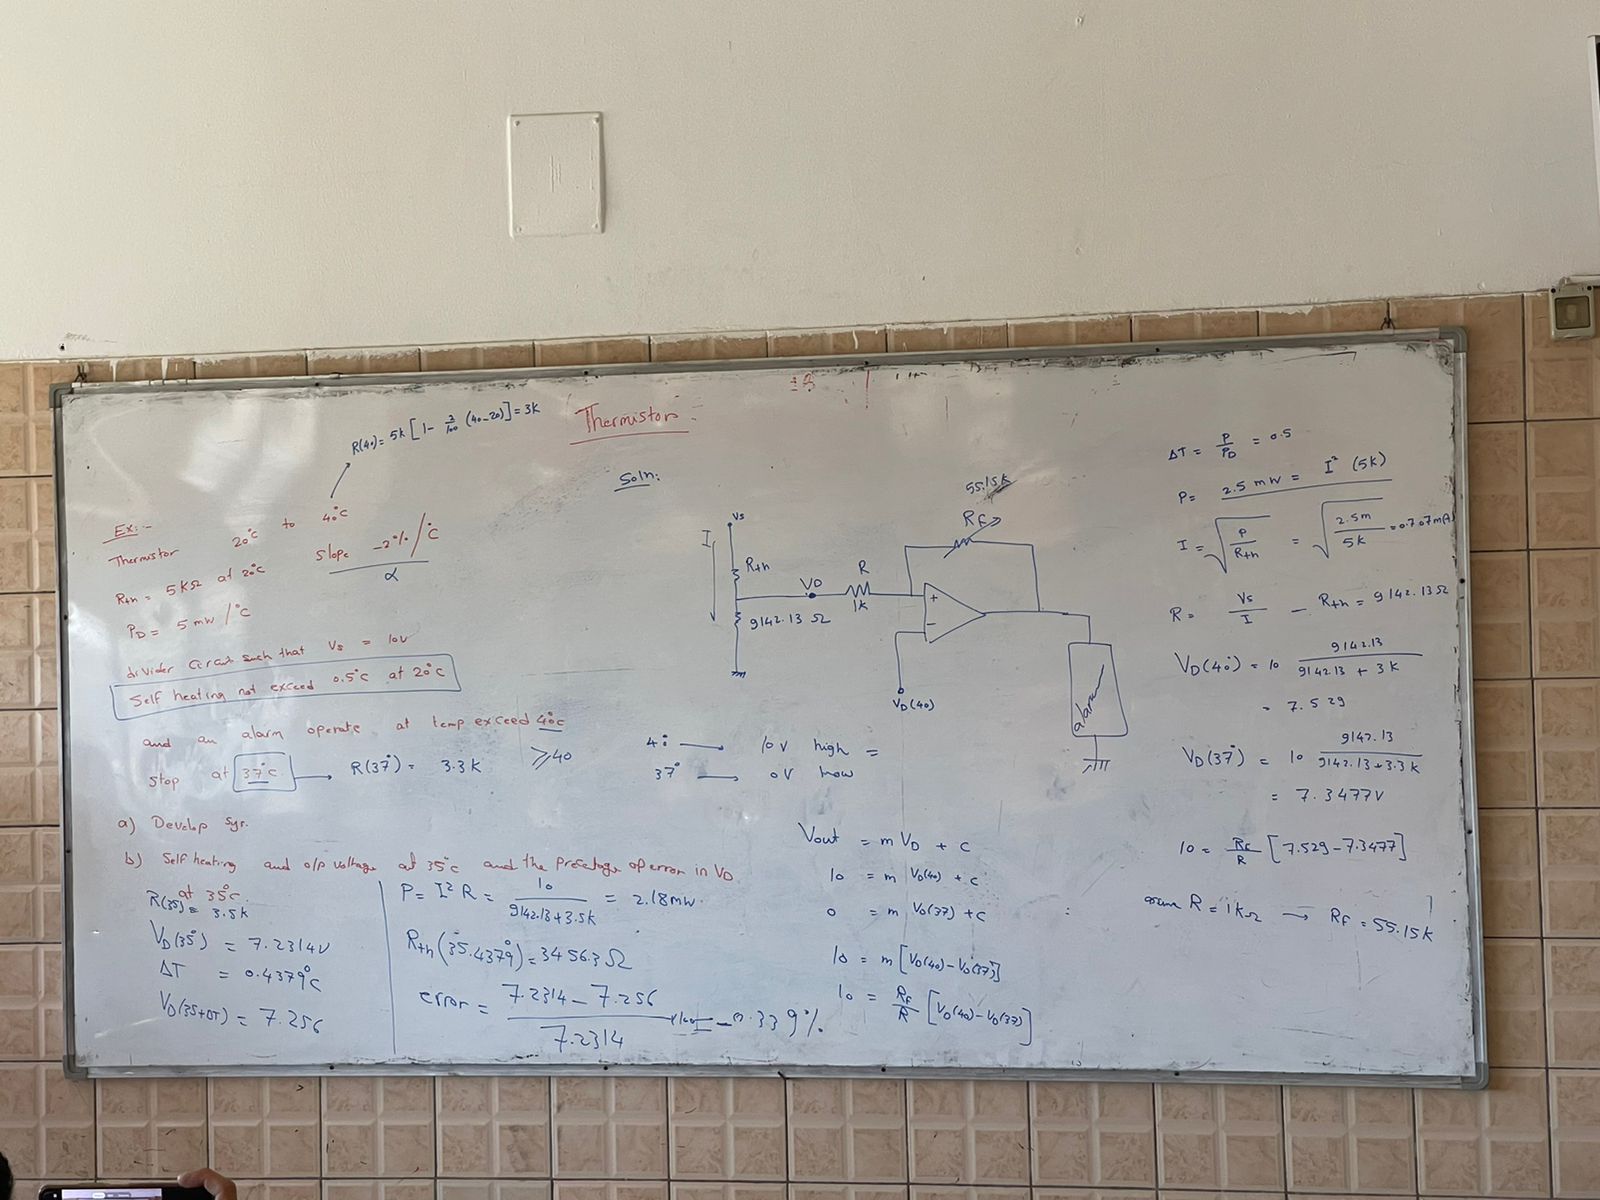 Thermistor :-
R(40) = 5k [1 - 2/100 (40-20)] = 3k
Ex:-
Thermistor 20°c to 40°c
Rth = 5kΩ at 20°c slope -2%/°c
α
PD = 5 mw/°c
divider circuit such that Vs = 10v
Self heating not exceed 0.5°c at 20°c
and an alarm operate at temp exceed 40c
≥40
stop at 37°c → R(37°) = 3.3k
a) Develop sys.
b) Self heating and o/p voltage at 35°c and the precetage of error in VD
at 35°c.
R(35) = 3.5k
VD(35°) = 7.2314v
ΔT = 0.4379°c
VD(35+ΔT) = 7.256
P = I² R = 10 / 9142.13+3.5k = 2.18mw.
Rth(35.4379°) = 3456.3 Ω
error = 7.2314 - 7.256 / 7.2314 × 100 = -0.339%
Soln:
Vs
I
Rth
9142.13 Ω
VD
R
1k
55.15k
RF
+
-
VD(40)
alarm
4° → 10v high =
37° → 0v low
Vout = m VD + c
10 = m VD(40) + c
0 = m VD(37) + c
10 = m [VD(40) - VD(37)]
10 = RF/R [VD(40) - VD(37)]
ΔT = P/PD = 0.5
P = 2.5 mw = I² (5k)
I = √(P/Rth) = √(2.5m/5k) = 0.707m(A)
R = Vs/I - Rth = 9142.13Ω
VD(40°) = 10 9142.13 / 9142.13 + 3k
= 7.529
VD(37°) = 10 9142.13 / 9142.13+3.3k
= 7.3477v
10 = RF/R [7.529 - 7.3477]
R = 1kΩ → RF = 55.15k